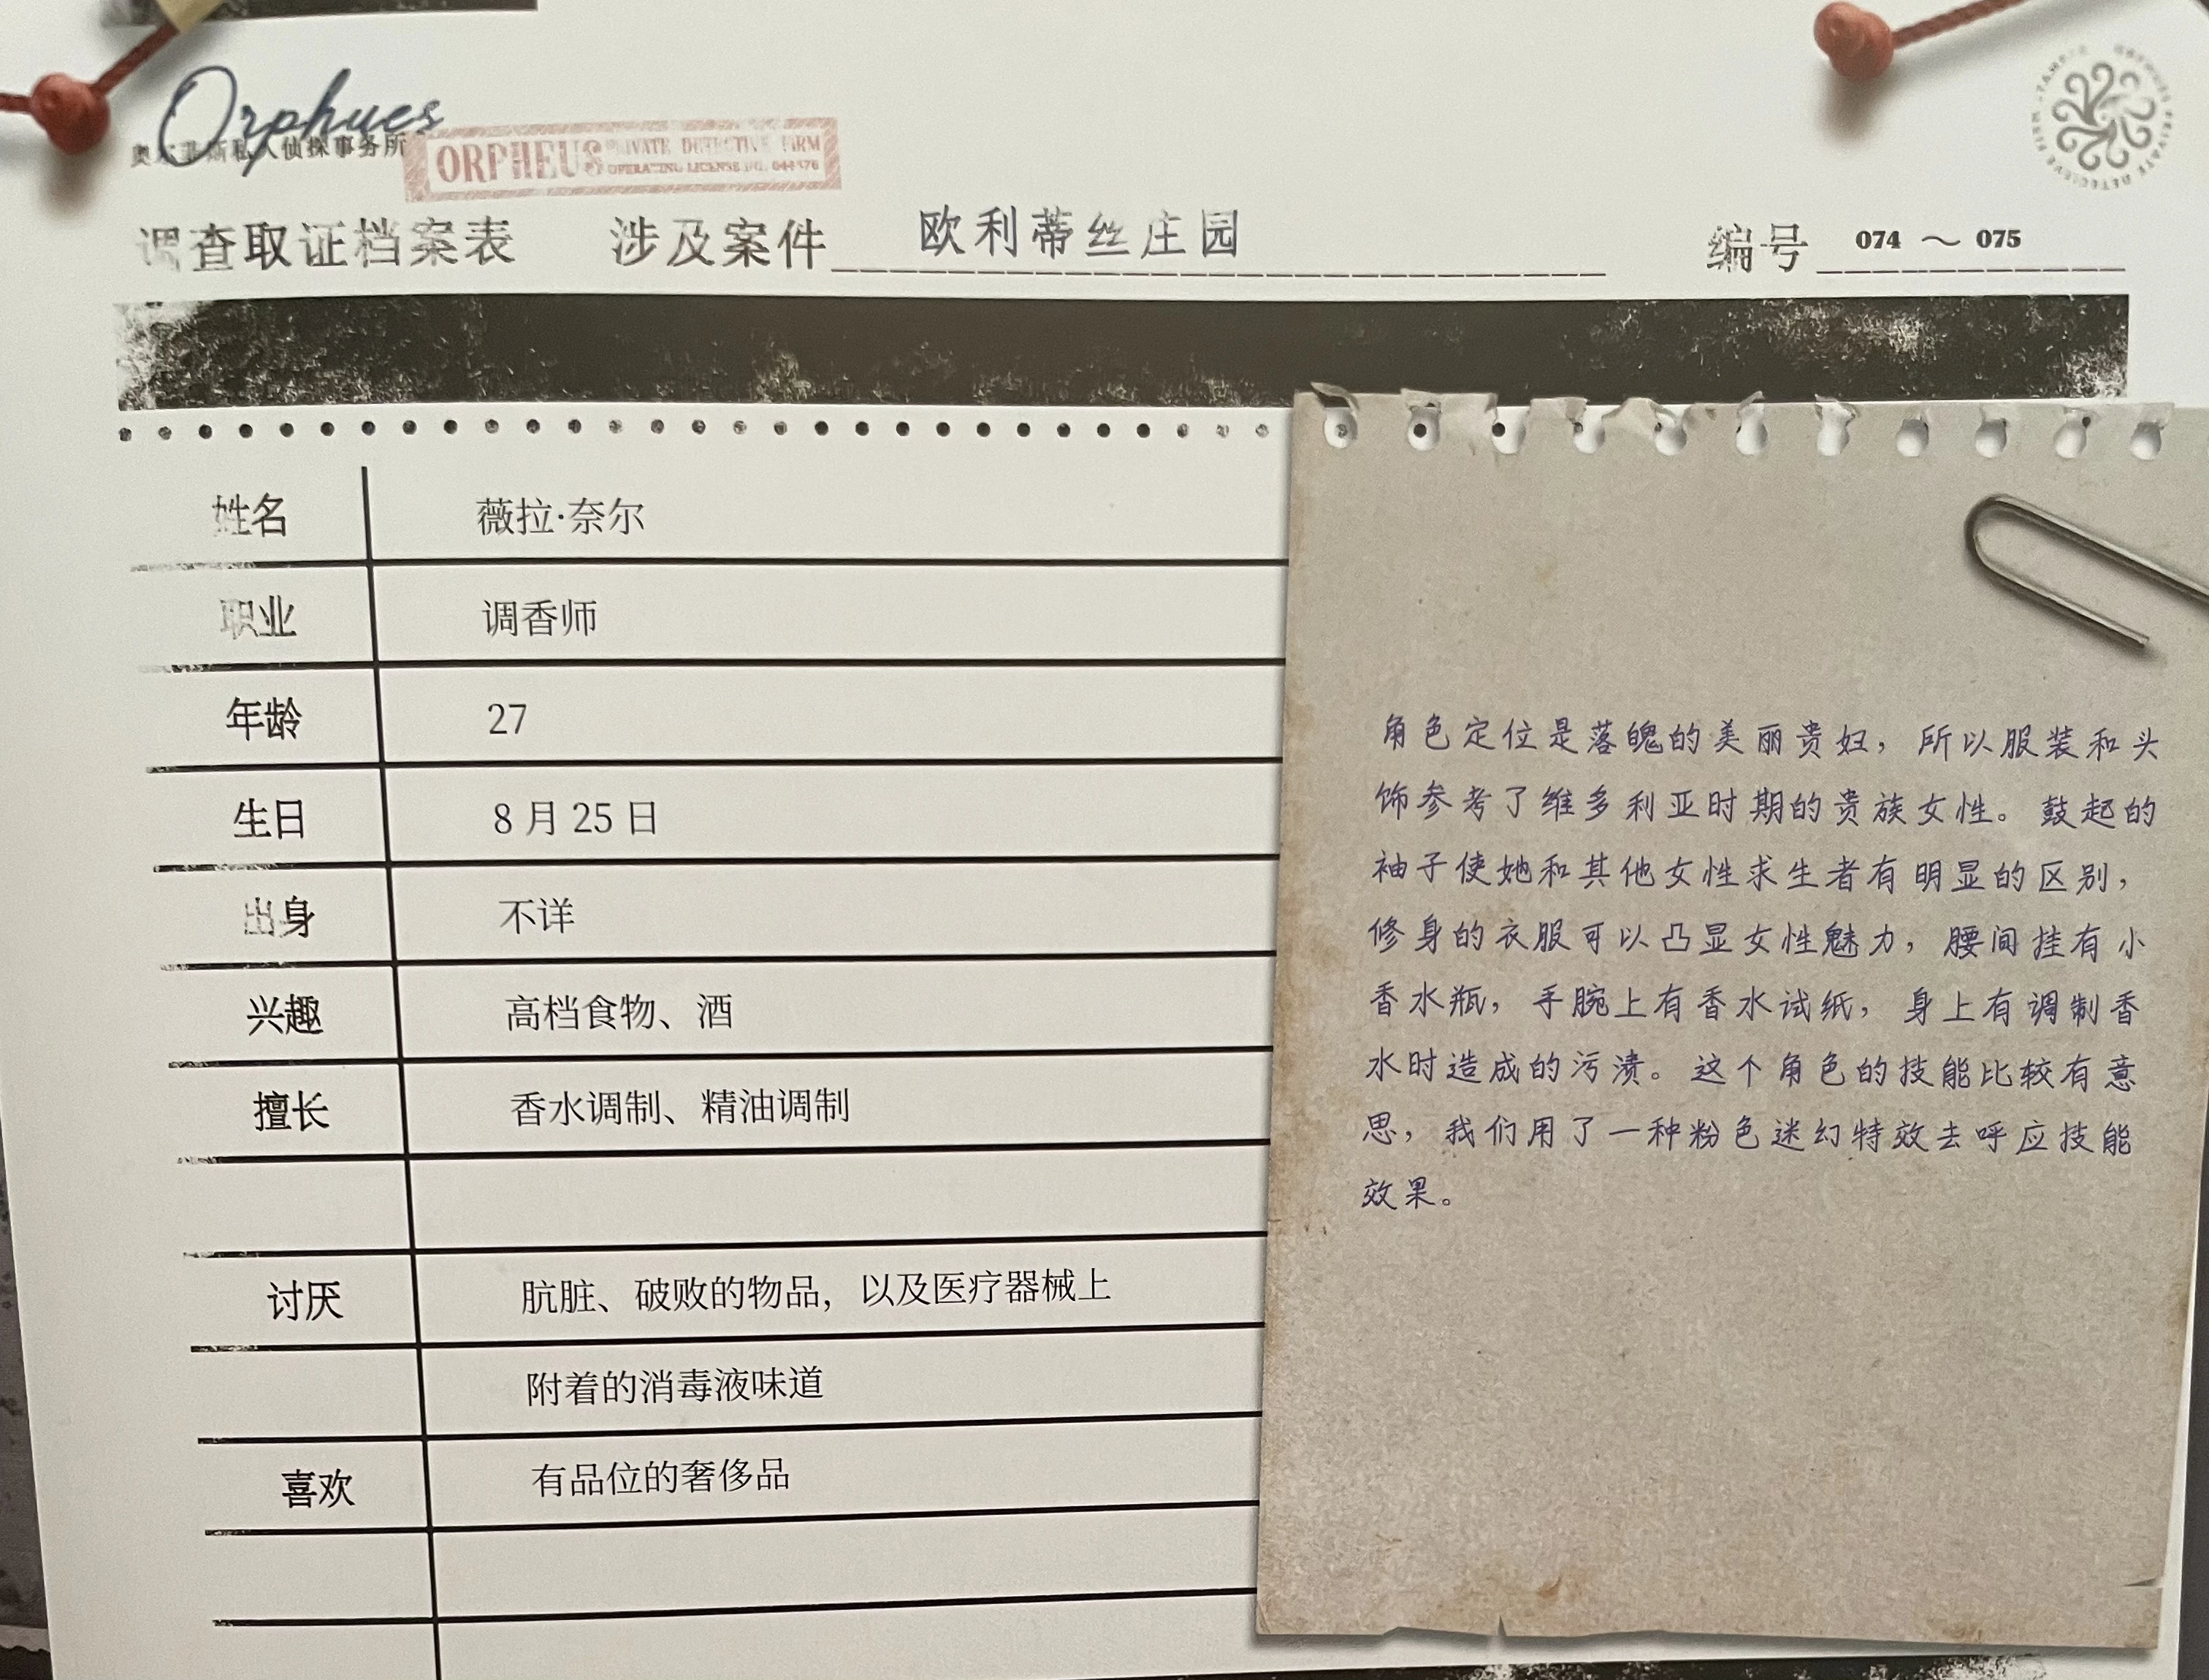 Orphues
奥尔菲斯私人侦探事务所
ORPHEUS PRIVATE DETECTIVE FIRM
OPERATING LICENSE NO.
调查取证档案表 涉及案件 欧利蒂丝庄园 编号 074 ～ 075
姓名 薇拉·奈尔
职业 调香师
年龄 27
生日 8 月 25 日
出身 不详
兴趣 高档食物、酒
擅长 香水调制、精油调制
讨厌 肮脏、破败的物品，以及医疗器械上
附着的消毒液味道
喜欢 有品位的奢侈品
角色定位是落魄的美丽贵妇，所以服装和头
饰参考了维多利亚时期的贵族女性。鼓起的
袖子使她和其他女性求生者有明显的区别，
修身的衣服可以凸显女性魅力，腰间挂有小
香水瓶，手腕上有香水试纸，身上有调制香
水时造成的污渍。这个角色的技能比较有意
思，我们用了一种粉色迷幻特效去呼应技能
效果。